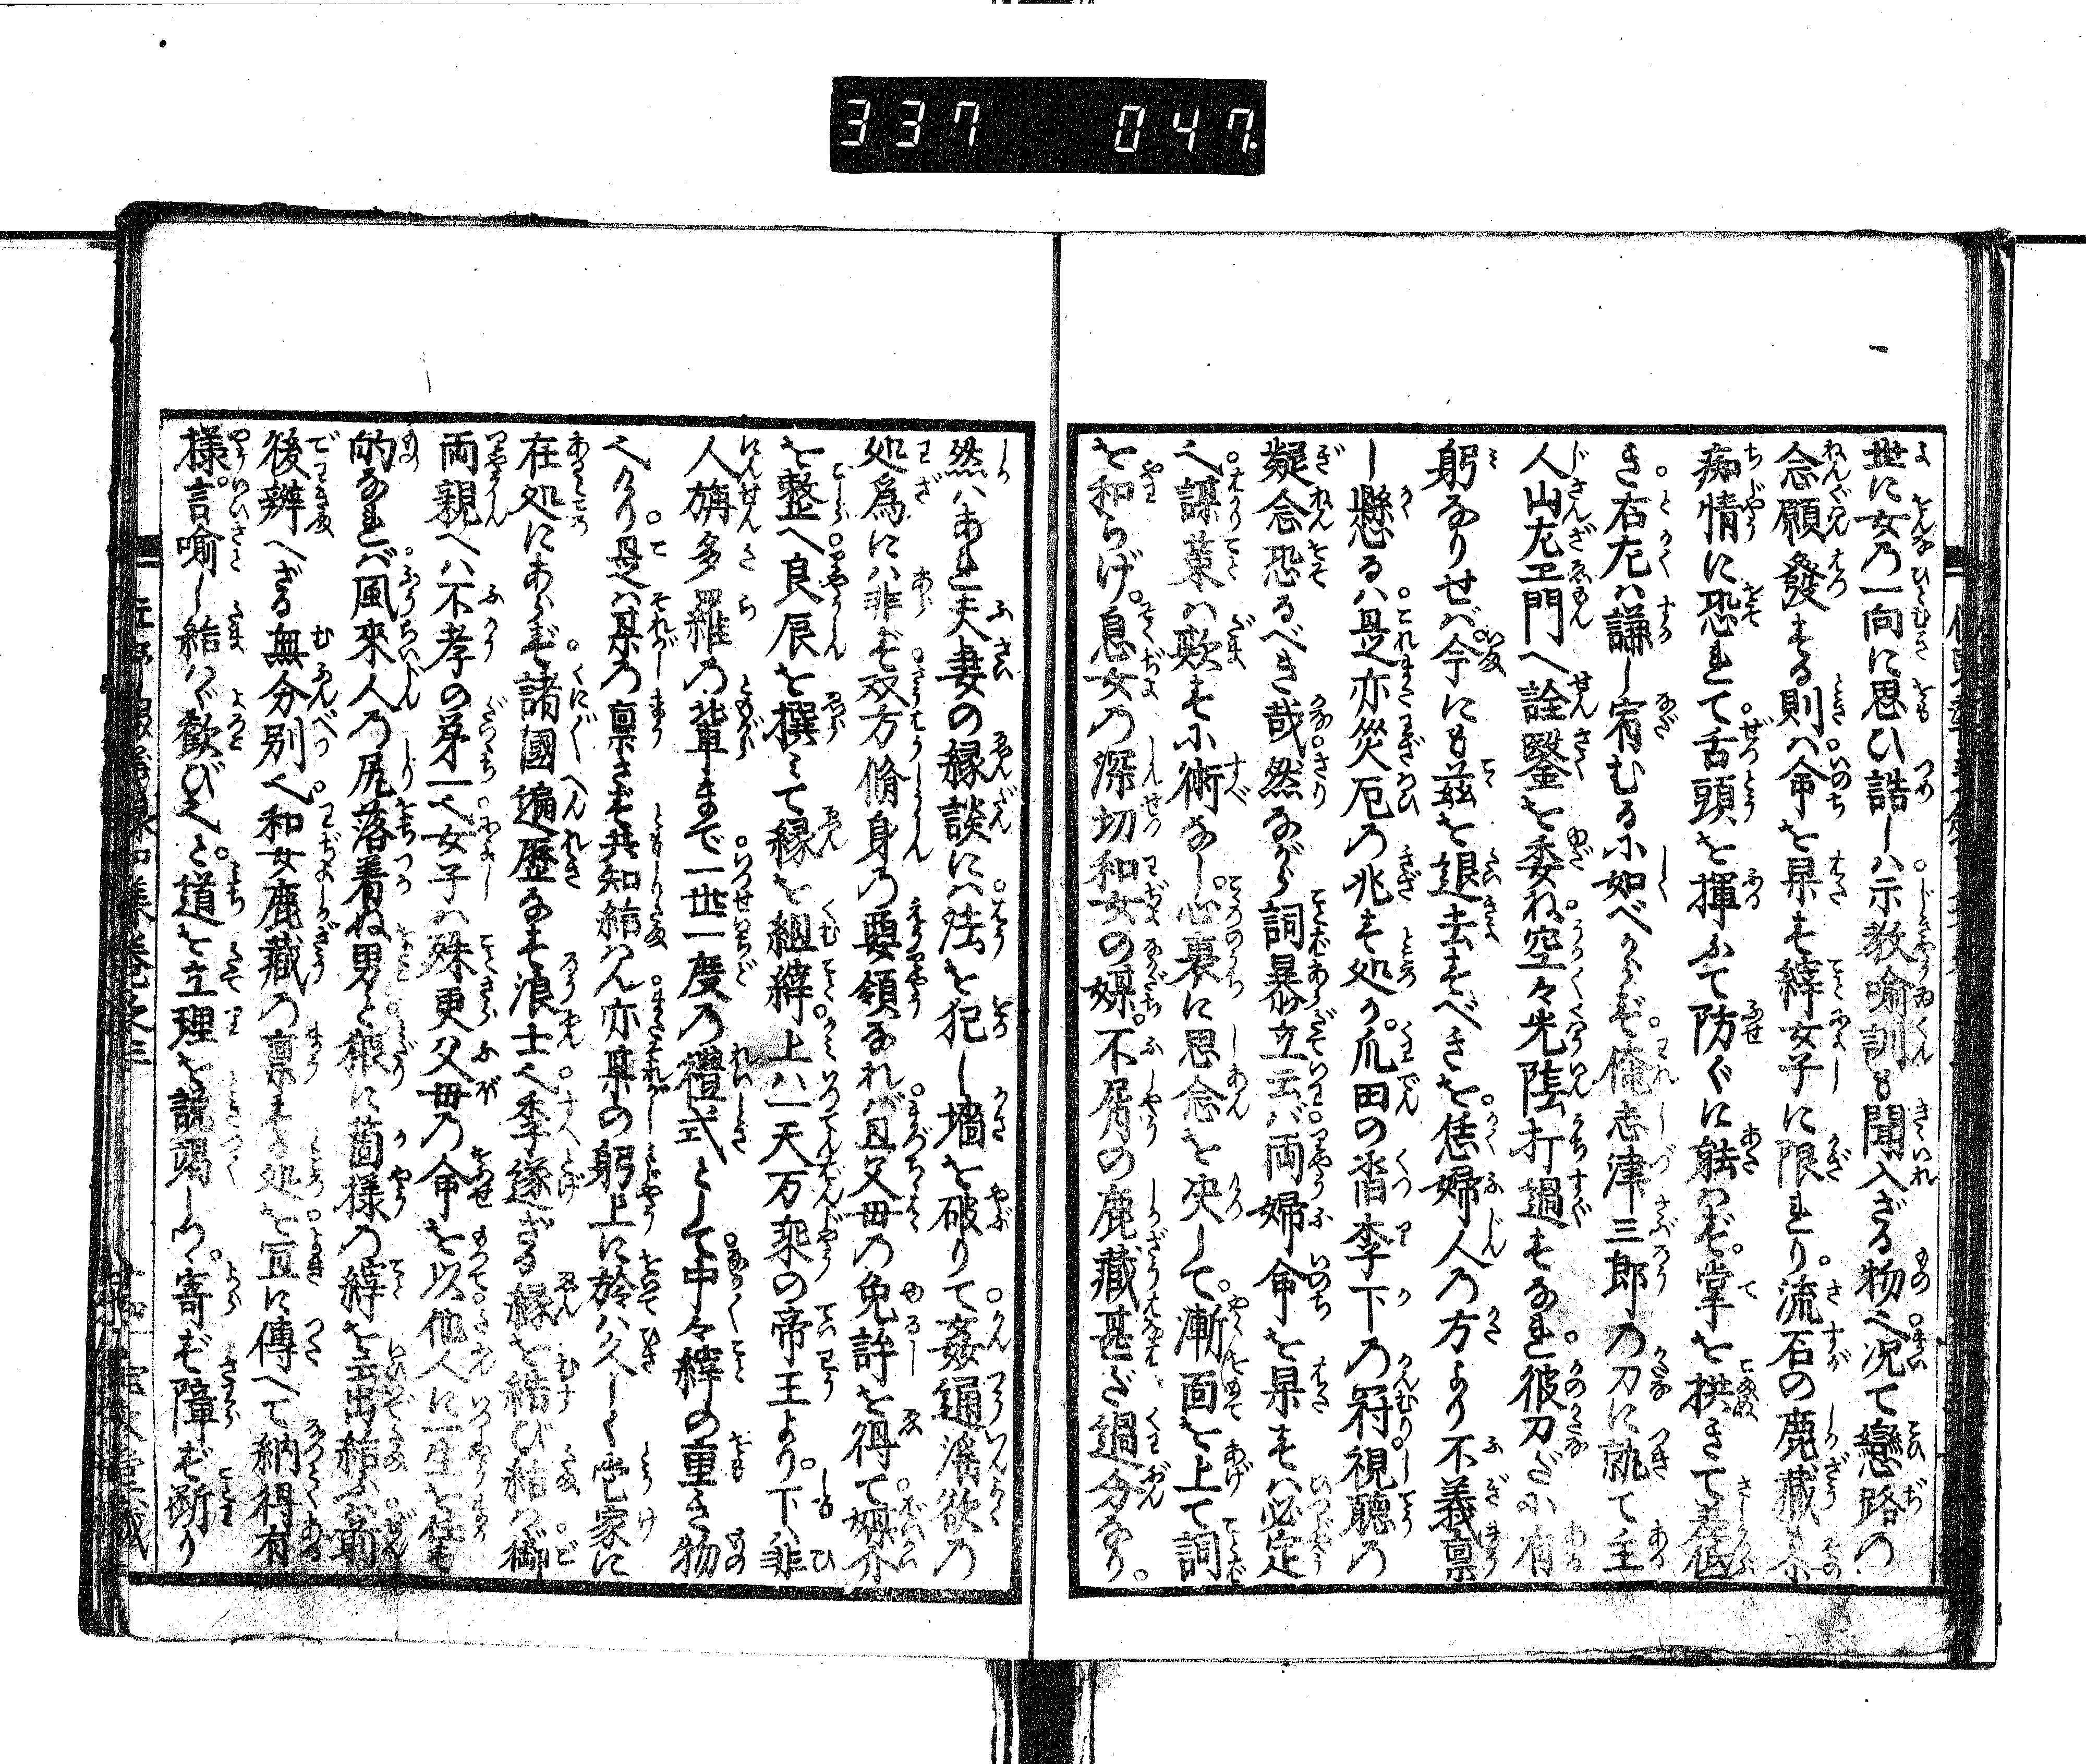 337 047.
世に女乃一向に思ひ詰しハ示教喩訓も聞入ざる物へ况て戀路の
念願發する則ハ命を果す縡女子に限れり。流石の鹿藏も
痴情に恐れて。舌頭を揮ふて防ぐに能はず。掌を拱きて差俯
き。右左ハ謙し宥むるふ如べからず。俺志津三郎乃刀に就て主
人山左エ門へ詮鑿を委ね。空々光陰打過すなれ。彼刀だに有
躬なりせば。今にも茲を退去すべきを。恁婦人乃方より不義禀
し懸るハ。是亦災厄乃兆す処か。爪田の沓李下乃冠。視聽乃
疑念恐るべき哉。然ながら詞暴立云ば。両婦命を果すハ必定
へ。謀策ハ欺すふ術なし。心裏に思念を决して。漸面を上て詞
を和らげ。息女乃深切和女の媒。不肖の鹿藏甚だ過分なり。
然ハあれ夫妻の縁談にハ。法を犯し墻を破りて。姦通滛欲乃
処爲にハ非ず。双方脩身乃要領なれば。且父母乃免許を得て。媒介
を整へ。良辰を撰みて縁を組縡。上ハ一天万乘の帝王より。下ハ非
人旃多羅乃輩まで。一世一度乃禮式として。中々縡の重き物
へかり。是ハ某乃禀さず共知給はん。亦某の躬上に於ハ。久しく壱家に
在処にあらず。諸國遍歴なす浪士へ。季遂ざる縁を結び給はゞ。御
両親へハ不孝の第一へ。女子ハ殊更父母乃命を以。他人に一生を任す
的なれば。風來人乃尻落着ぬ男と。猥に箇様乃縡を云出給ふハ。前
後辨へざる無分別へ。和女鹿藏の禀する処を。宜に傳へて納得有
様。言喩し給はゞ歡びへと。道を立理を説竭しめ。寄ず障ず斷り